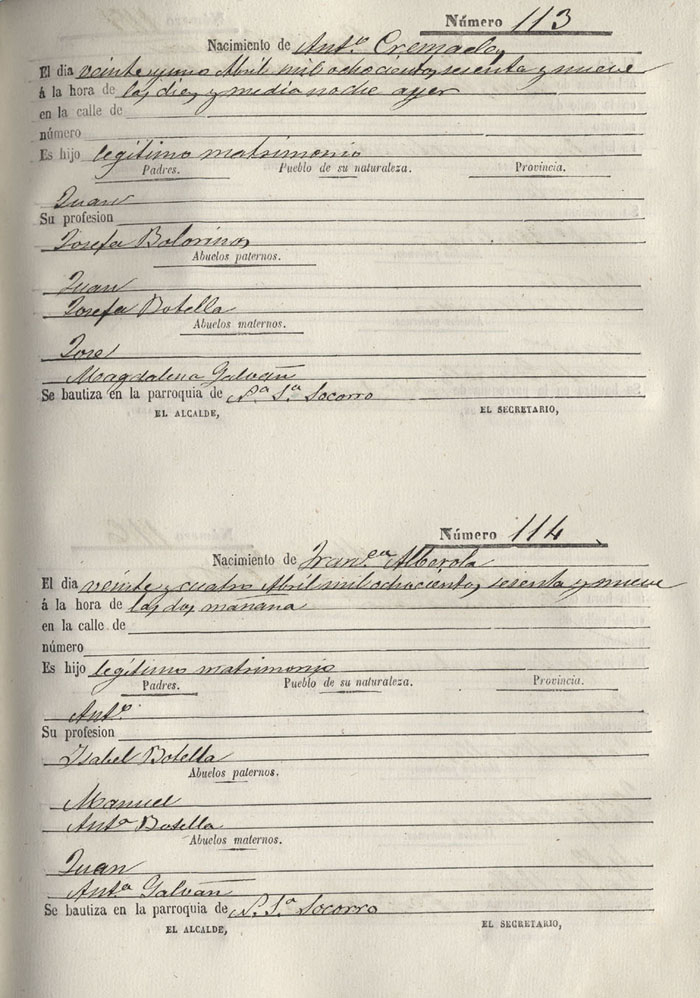 Número 113
Nacimiento de Ant.º Cremades
El dia veinte y uno Abril mil ochocientos sesenta y nueve
á la hora de las diez y media noche ayer
en la calle de
número
Es hijo legítimo matrimonio
Padres. Pueblo de su naturaleza. Provincia.
Juan
Su profesion
Josefa Bolorinos
Abuelos paternos.
Juan
Josefa Botella
Abuelos maternos.
José
Magdalena Galvañ
Se bautiza en la parroquia de N.ª S.ª Socorro
EL ALCALDE, EL SECRETARIO,
Número 114
Nacimiento de Fran.ca Alberola
El dia veinte y cuatro Abril mil ochocientos sesenta y nueve
á la hora de las dos mañana
en la calle de
número
Es hijo legítimo matrimonio
Padres. Pueblo de su naturaleza. Provincia.
Ant.º
Su profesion
Isabel Botella
Abuelos paternos.
Manuel
Ant.ª Botella
Abuelos maternos.
Juan
Ant.ª Galvañ
Se bautiza en la parroquia de N. S.ª Socorro
EL ALCALDE, EL SECRETARIO,